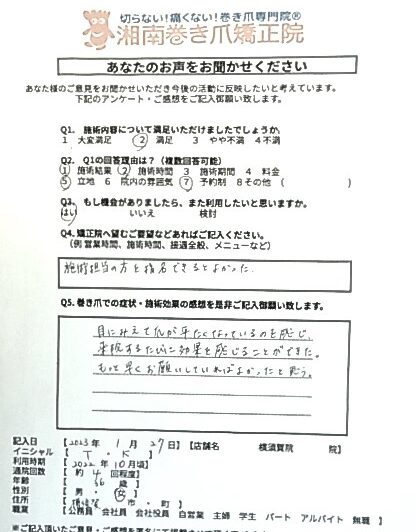 切らない!痛くない!巻き爪専門院®
湘南巻き爪矯正院
あなたのお声をお聞かせください
あなた様のご意見をお聞かせいただき今後の活動に反映したいと考えています。
下記のアンケート・ご感想をご記入御願い致します。
Q1. 施術内容について満足いただけましたでしょうか。
1 大変満足 2 満足 3 やや不満 4不満
Q2. Q1の回答理由は?(複数回答可能)
1 施術結果 2 施術時間 3 施術期間 4 料金
5 立地 6 院内の雰囲気 7 予約制 8その他 ( )
Q3. もし機会がありましたら、また利用したいと思いますか。
はい いいえ 検討
Q4. 矯正院へ望むご要望などあればご記入ください。
(例 営業時間、施術時間、接遇全般、メニューなど)
施術担当の方を指名できるとよかった.
Q5. 巻き爪での症状・施術効果の感想を是非ご記入御願い致します。
目にみえて爪が平たくなっているのを感じ、
来院するたびに効果を感じることができた。
もっと早くお願いしていればよかったと思う。
記入日 【2023年 1月 27日】【店舗名 横須賀院 院】
イニシャル 【 T ・ K 】
利用時期 【2022年 10月頃】
通院回数 【 約 4 回程度】
年齢 【 66 歳 】
性別 【 男・女 】
住所 【 横須賀 市・町 】
職業 【公務員 会社員 会社役員 自営業 主婦 学生 パート アルバイト 無職 】